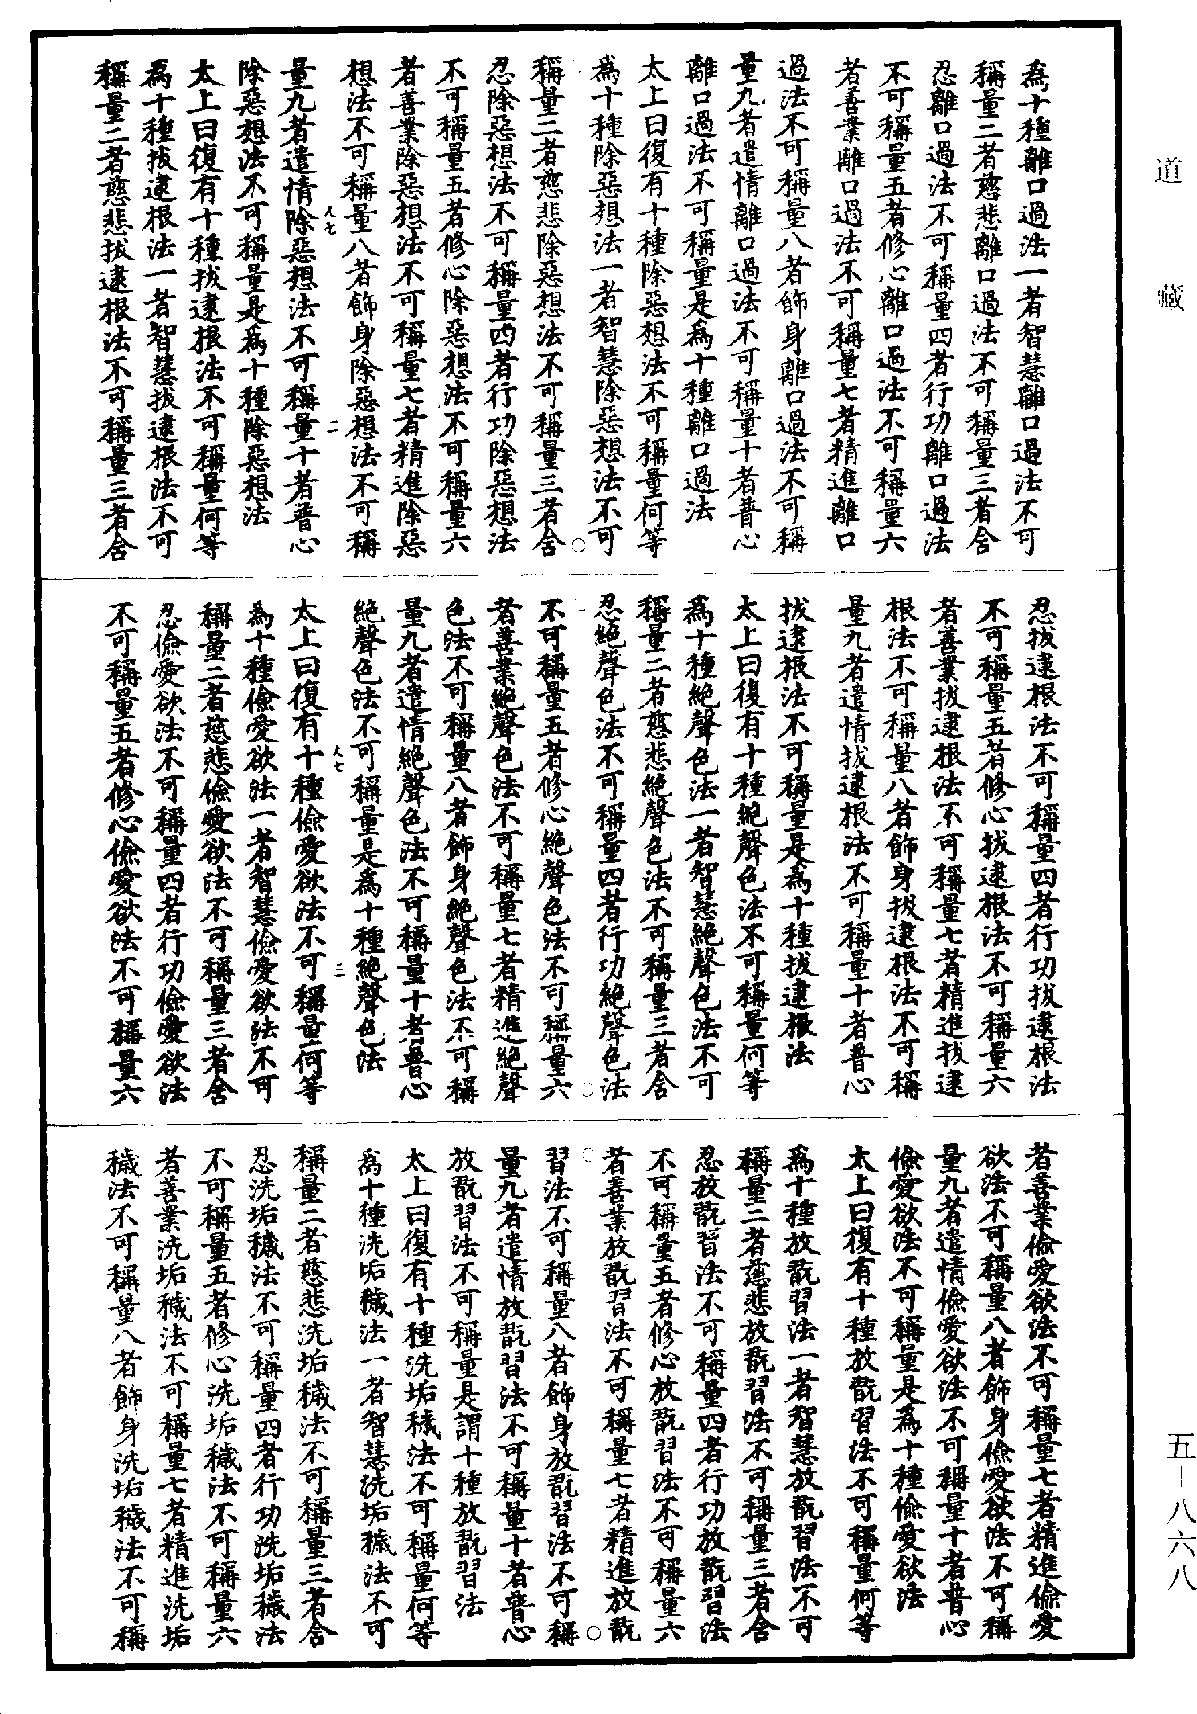 道藏
五—八六八
為十種離口過法一者智慧離口過法不可
稱量二者慈悲離口過法不可稱量三者含
忍離口過法不可稱量四者行功離口過法
不可稱量五者修心離口過法不可稱量六
者善業離口過法不可稱量七者精進離口
過法不可稱量八者飾身離口過法不可稱
量九者遣情離口過法不可稱量十者普心
離口過法不可稱量是為十種離口過法
太上曰復有十種除惡想法不可稱量何等
為十種除惡想法一者智慧除惡想法不可
稱量二者慈悲除惡想法不可稱量三者含
忍除惡想法不可稱量四者行功除惡想法
不可稱量五者修心除惡想法不可稱量六
者善業除惡想法不可稱量七者精進除惡
想法不可稱量八者飾身除惡想法不可稱
人七 二
量九者遣情除惡想法不可稱量十者普心
除惡想法不可稱量是為十種除惡想法
太上曰復有十種拔逮根法不可稱量何等
為十種拔逮根法一者智慧拔逮根法不可
稱量二者慈悲拔逮根法不可稱量三者含
忍拔逮根法不可稱量四者行功拔逮根法
不可稱量五者修心拔逮根法不可稱量六
者善業拔逮根法不可稱量七者精進拔逮
根法不可稱量八者飾身拔逮根法不可稱
量九者遣情拔逮根法不可稱量十者普心
拔逮根法不可稱量是為十種拔逮根法
太上曰復有十種絕聲色法不可稱量何等
為十種絕聲色法一者智慧絕聲色法不可
稱量二者慈悲絕聲色法不可稱量三者含
忍絕聲色法不可稱量四者行功絕聲色法
不可稱量五者修心絕聲色法不可稱量六
者善業絕聲色法不可稱量七者精進絕聲
色法不可稱量八者飾身絕聲色法不可稱
量九者遣情絕聲色法不可稱量十者普心
絕聲色法不可稱量是為十種絕聲色法
人七 三
太上曰復有十種儉愛欲法不可稱量何等
為十種儉愛欲法一者智慧儉愛欲法不可
稱量二者慈悲儉愛欲法不可稱量三者含
忍儉愛欲法不可稱量四者行功儉愛欲法
不可稱量五者修心儉愛欲法不可稱量六
者善業儉愛欲法不可稱量七者精進儉愛
欲法不可稱量八者飾身儉愛欲法不可稱
量九者遣情儉愛欲法不可稱量十者普心
儉愛欲法不可稱量是為十種儉愛欲法
太上曰復有十種放翫習法不可稱量何等
為十種放翫習法一者智慧放翫習法不可
稱量二者慈悲放翫習法不可稱量三者含
忍放翫習法不可稱量四者行功放翫習法
不可稱量五者修心放翫習法不可稱量六
者善業放翫習法不可稱量七者精進放翫
習法不可稱量八者飾身放翫習法不可稱
量九者遣情放翫習法不可稱量十者普心
放翫習法不可稱量是謂十種放翫習法
太上曰復有十種洗垢穢法不可稱量何等
為十種洗垢穢法一者智慧洗垢穢法不可
稱量二者慈悲洗垢穢法不可稱量三者含
忍洗垢穢法不可稱量四者行功洗垢穢法
不可稱量五者修心洗垢穢法不可稱量六
者善業洗垢穢法不可稱量七者精進洗垢
穢法不可稱量八者飾身洗垢穢法不可稱